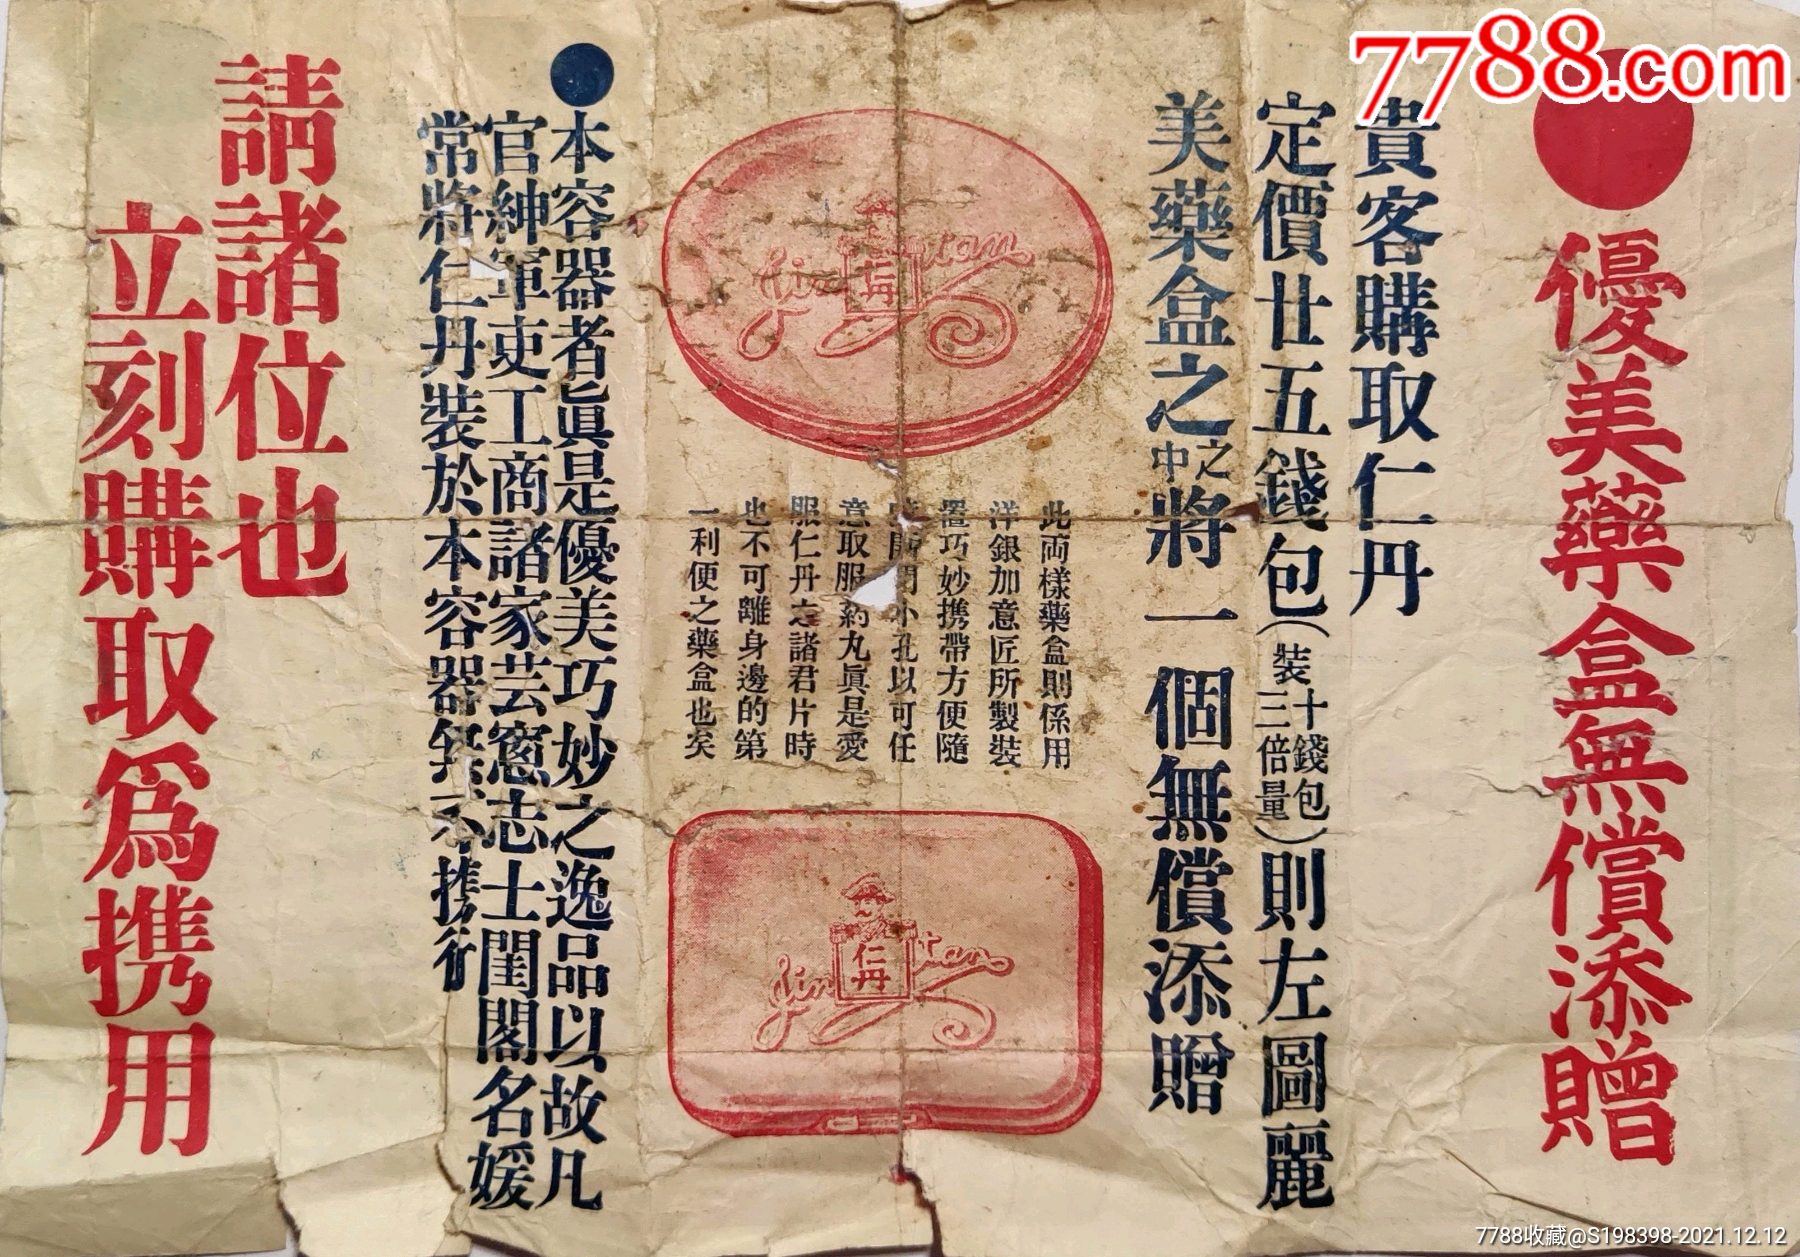 7788.com
●優美藥盒無償添贈
貴客購取仁丹
定價廿五錢包(裝十錢包三倍量)則左圖麗
美藥盒之之中將一個無償添贈
Jintan
仁丹
此両樣藥盒則係用
洋銀加意匠所製裝
置巧妙携帶方便隨
開小孔以可任
意取服約丸眞是愛
服仁丹之諸君片時
也不可離身邊的第
一利便之藥盒也矣
Jintan
仁丹
●本容器者眞是優美巧妙之逸品以故凡
官紳軍吏工商諸家芸窓志士閨閣名媛
常將仁丹裝於本容器無不携行
請諸位也
立刻購取爲携用
7788收藏@S198398-2021.12.12